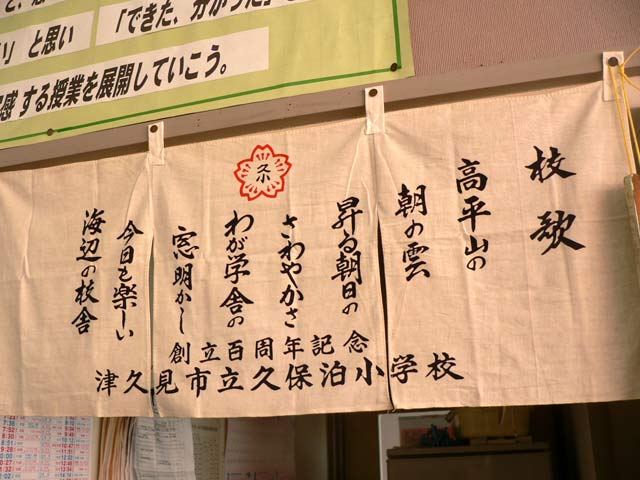 「できた、分かった」
い」と思い
感する授業を展開していこう。
校歌
高平山の
朝の雲
昇る朝日の
さわやかさ
わが学舎の
窓明かし
今日も楽しい
海辺の校舎
創立百周年記念
津久見市立久保泊小学校